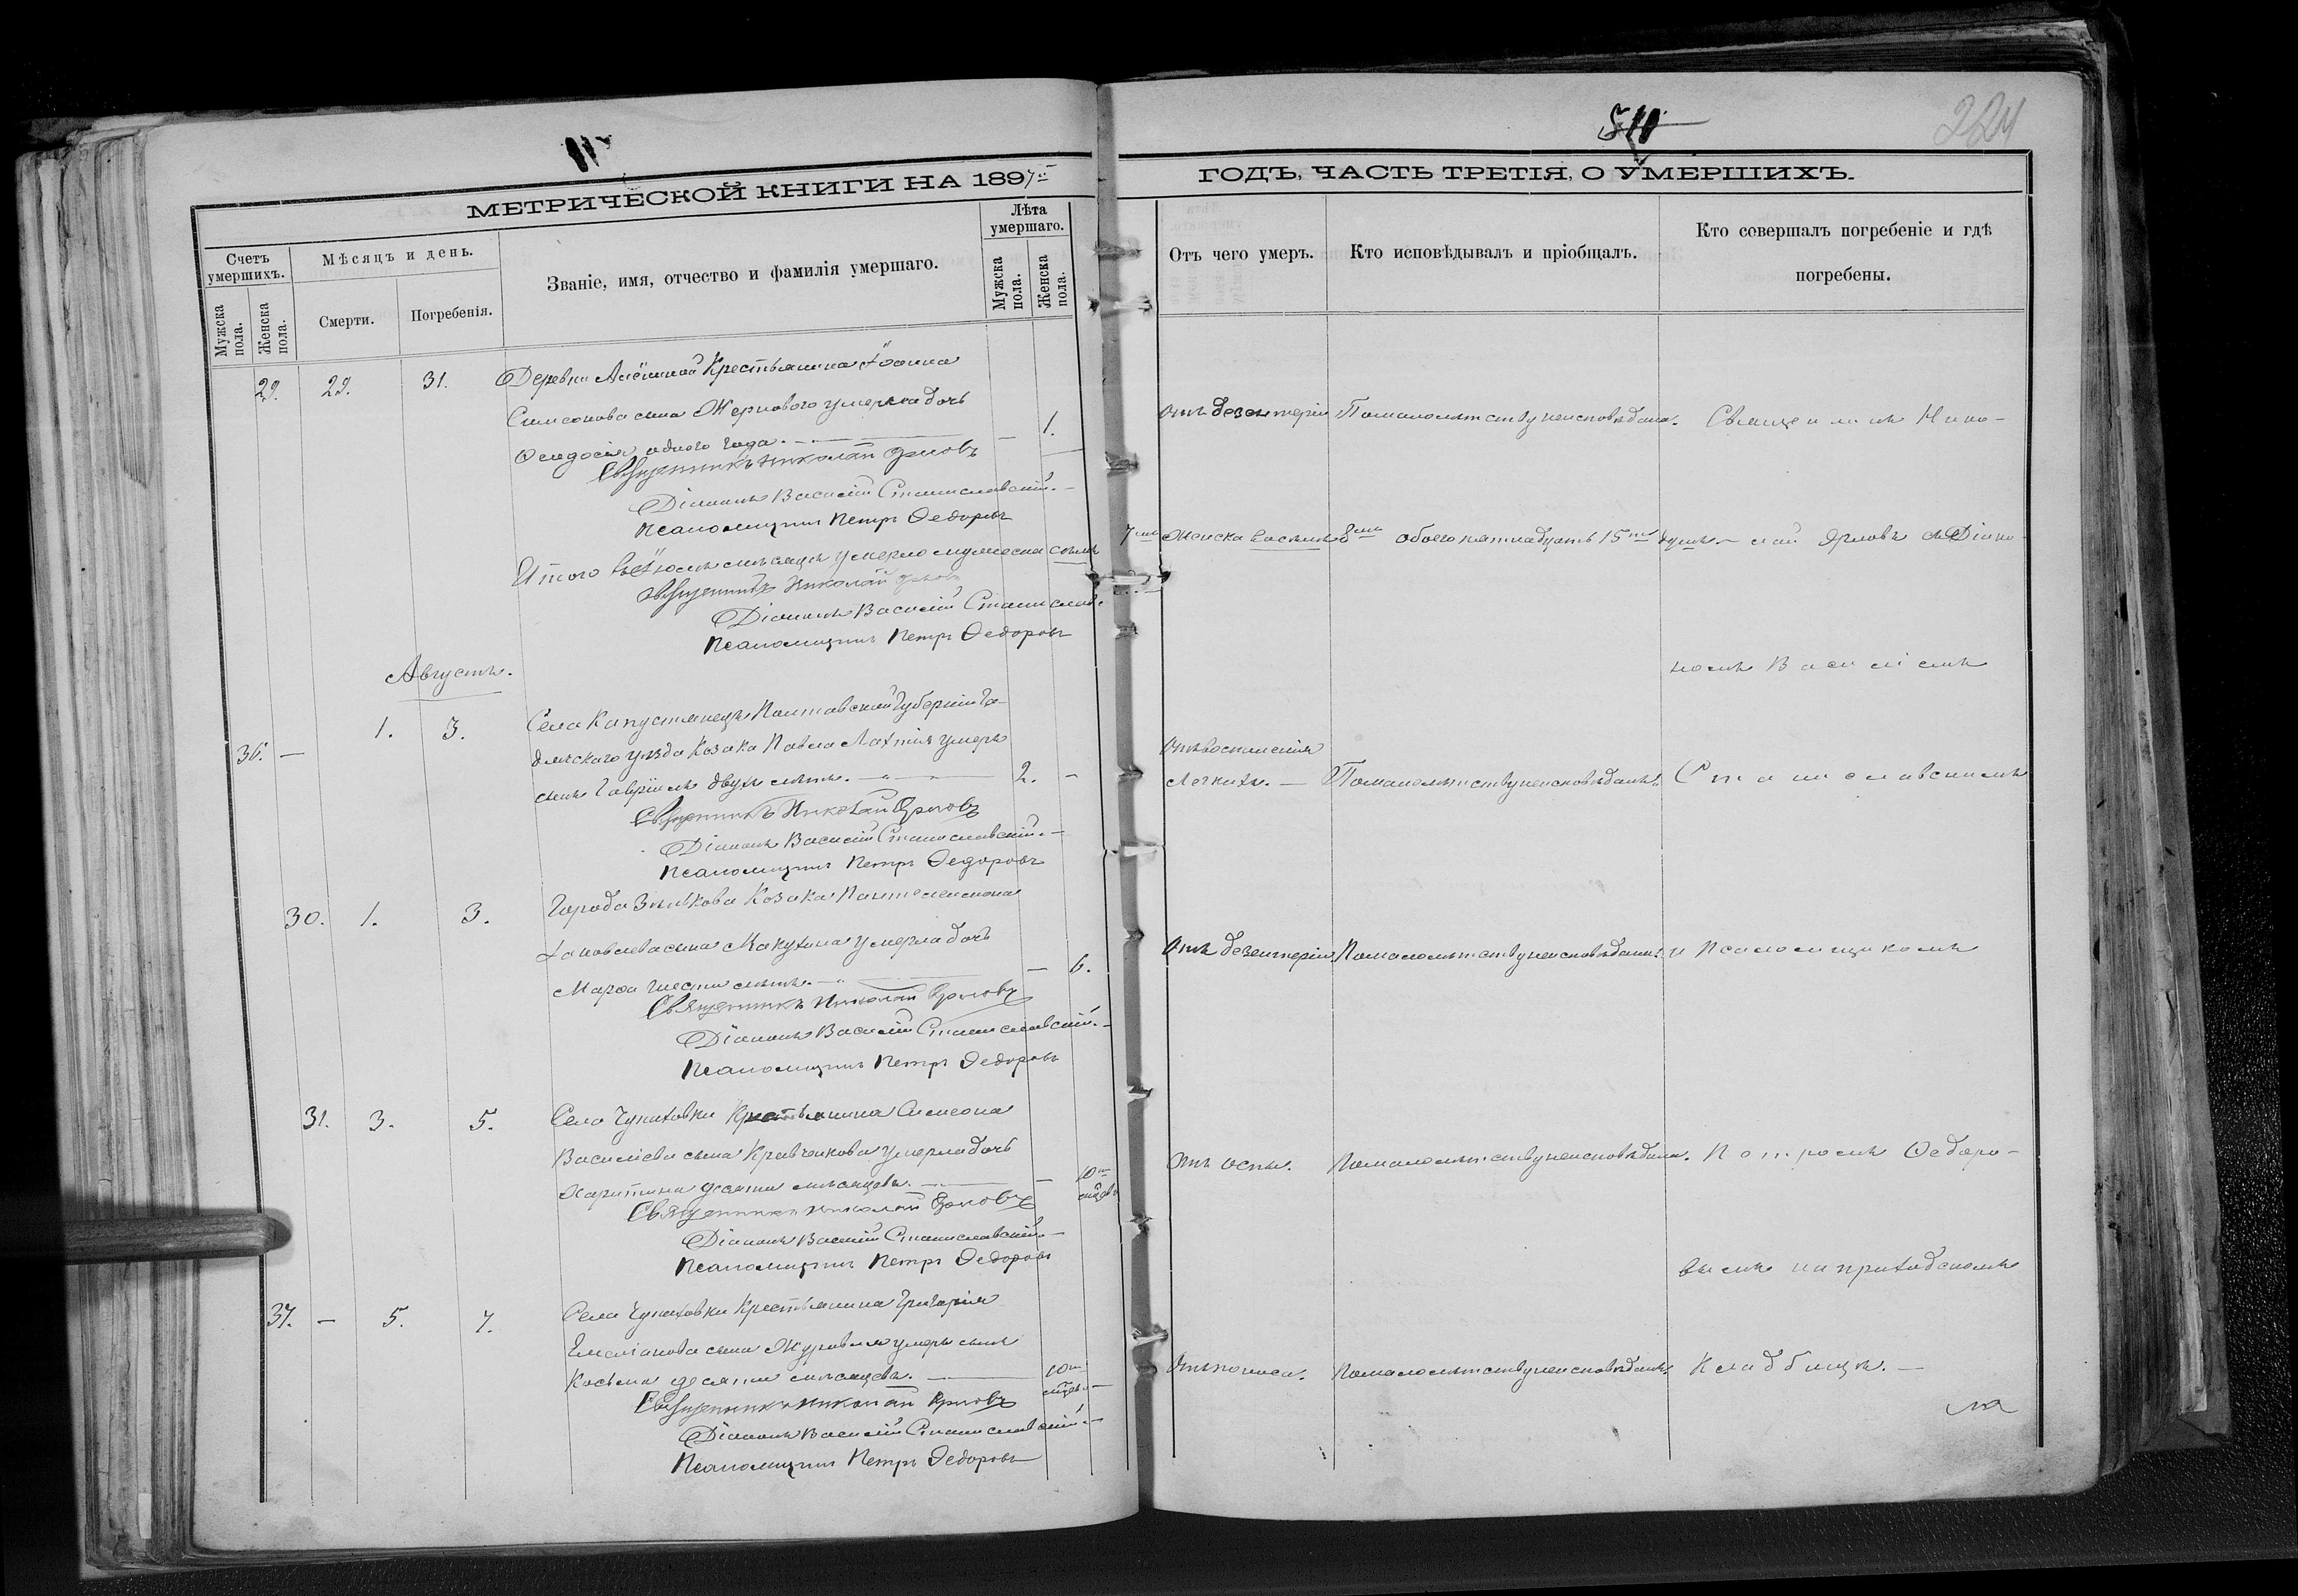 МЕТРИЧЕСКОЙ КНИГИ НА 1897
Счетъ умершихъ.
Мужска пола.
Женска пола.
Мѣсяцъ и день.
Смерти.
Погребенія.
Званіе, имя, отчество и фамилія умершаго.
Лѣта умершаго.
Мужска пола.
Женска пола.
29. 29. 31. Деревни Крестьянина Іоанна
Симеонова сына Жернового умерла дочь
Ѳеодосія одного года. — 1.
Священникъ Николай Орловъ
Діаконъ Василій Станиславскій. —
Псаломщикъ Петръ Ѳедоровъ
Итого въ Іюлѣ мѣсяцѣ умерло мужеска семь
Священникъ Николай Орловъ
Діаконъ Василій Станислав.
Псаломщикъ Петръ Ѳедоровъ
Августъ.
36. — 1. 3. Села Капустянецъ Полтавской Губерніи Га-
дячскаго уѣзда Козака Павла Лахтія умеръ
сынъ Гавріилъ двухъ лѣтъ. — 2. —
Священникъ Николай Орловъ
Діаконъ Василій Станиславскій. —
Псаломщикъ Петръ Ѳедоровъ
30. 1. 3. Города Зѣнькова Козака Пантелеимона
Іаковлева сына Макухина умерла дочь
Марѳа шести лѣтъ. — 6.
Священникъ Николай Орловъ
Діаконъ Василій Станиславскій. —
Псаломщикъ Петръ Ѳедоровъ
31. 3. 5. Села Чупаховки Крестьянина Симеона
Василіева сына Кравченкова умерла дочь
Харитина десяти мѣсяцевъ. — 10
Священникъ Николай Орловъ
Діаконъ Василій Станиславскій. —
Псаломщикъ Петръ Ѳедоровъ
37. — 5. 7. Села Чупаховки Крестьянина Григорія
Емеліанова сына Журавля умеръ сынъ
Косьма десяти мѣсяцевъ. — 10
Священникъ Николай Орловъ
Діаконъ Василій Станиславскій —
Псаломщикъ Петръ Ѳедоровъ
224
ГОДЪ, ЧАСТЬ ТРЕТІЯ, О УМЕРШИХЪ.
Отъ чего умеръ.
Кто исповѣдывалъ и пріобщалъ.
Кто совершалъ погребеніе и гдѣ
погребены.
Отъ дезентеріи По малолѣтству неисповѣдана. Священникъ Нико-
7 женска восемь 8 обоего пятнадцать 15 душъ. — лай Орловъ съ Діако-
номъ Василіемъ
Отъ воспаленія
легкихъ. — По малолѣтству неисповѣданъ. Станиславскимъ
Отъ дезентеріи По малолѣтству неисповѣдана. и Псаломщикомъ
Отъ оспы. По малолѣтству неисповѣдана. Петромъ Ѳедоро-
вымъ на приходскомъ
Отъ поноса. По малолѣтству неисповѣданъ. Кладбищѣ. —